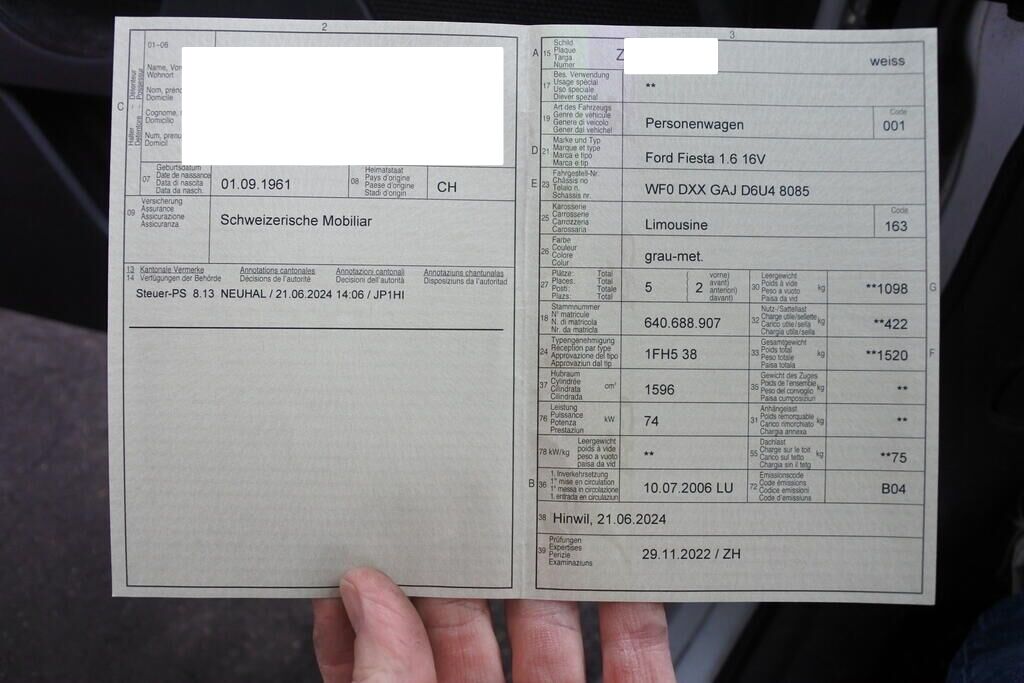 2
01-06
Name, Vor
Wohnort
Nom, préno
Domicile
Cognome,
Domicilio
Num, prenu
Domicil
C
Halter Détenteur
Detentore Possessur
07 Geburtsdatum
Date de naissance
Data di nascita
Data da nasch.
01.09.1961
08 Heimatstaat
Pays d'origine
Paese d'origine
Stadi d'origin
CH
09 Versicherung
Assurance
Assicurazione
Assicuranza
Schweizerische Mobiliar
13 Kantonale Vermerke Annotations cantonales Annotazioni cantonali Annotaziuns chantunalas
14 Verfügungen der Behörde Décisions de l'autorité Decisioni dell'autorità Disposiziuns da l'autoritad
Steuer-PS 8.13 NEUHAL / 21.06.2024 14:06 / JP1HI
3
A 15 Schild
Plaque
Targa
Numer
Z
weiss
17 Bes. Verwendung
Usage spécial
Uso speciale
Diever spezial
**
19 Art des Fahrzeugs
Genre de véhicule
Genere di veicolo
Gener dal vehichel
Personenwagen
Code
001
D 21 Marke und Typ
Marque et type
Marca e tipo
Marca e tip
Ford Fiesta 1.6 16V
E 23 Fahrgestell-Nr.
Châssis no
Telaio n.
Schassis nr.
WF0 DXX GAJ D6U4 8085
25 Karosserie
Carrosserie
Carrozzeria
Carossaria
Limousine
Code
163
26 Farbe
Couleur
Colore
Colur
grau-met.
27 Plätze: Total
Places: Total
Posti: Totale
Plazs: Total
5
2
vorne)
avant)
anteriori)
davant)
30 Leergewicht
Poids à vide
Peso a vuoto
Paisa da vid
kg
**1098
G
18 Stammnummer
N° matricule
N. di matricola
Nr. da matricla
640.688.907
32 Nutz-/Sattellast
Charge utile/sellette
Carico utile/sella
Chargia utila/sella
kg
**422
24 Typengenehmigung
Réception par type
Approvazione del tipo
Approvaziun dal tip
1FH5 38
33 Gesamtgewicht
Poids total
Peso totale
Paisa totala
kg
**1520
F
37 Hubraum
Cylindrée
Cilindrata
Cilindrada
cm³
1596
35 Gewicht des Zuges
Poids de l'ensemble
Peso del convoglio
Paisa cumposiziun
kg
**
76 Leistung
Puissance
Potenza
Prestaziun
kW
74
31 Anhängelast
Poids remorquable
Carico rimorchiato
Chargia annexa
kg
**
78 kW/kg
Leergewicht
poids à vide
peso a vuoto
paisa da vid
**
55 Dachlast
Charge sur le toit
Carico sul tetto
Chargia sin il tetg
kg
**75
B 36 1. Inverkehrsetzung
1re mise en circulation
1a messa in circolazione
1. entrada en circulaziun
10.07.2006 LU
72 Emissionscode
Code émissions
Codice emissioni
Code d'emissiuns
B04
38 Hinwil, 21.06.2024
39 Prüfungen
Expertises
Perizie
Examinaziuns
29.11.2022 / ZH